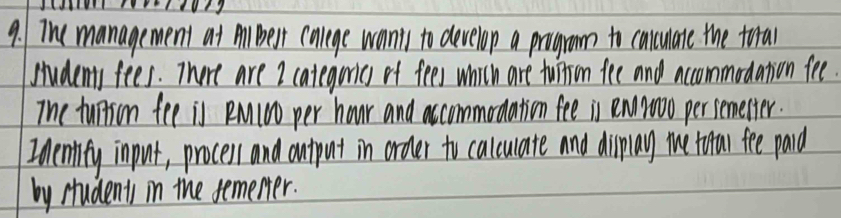 9. The management at All Best College wants to develop a program to calculate the total
students fees. There are 2 categories of fees which are tuition fee and accommodation fee.
The tuition fee is RM100 per hour and accommodation fee is RM2000 per semester.
Identify input, process and output in order to calculate and display the total fee paid
by students in the semester.